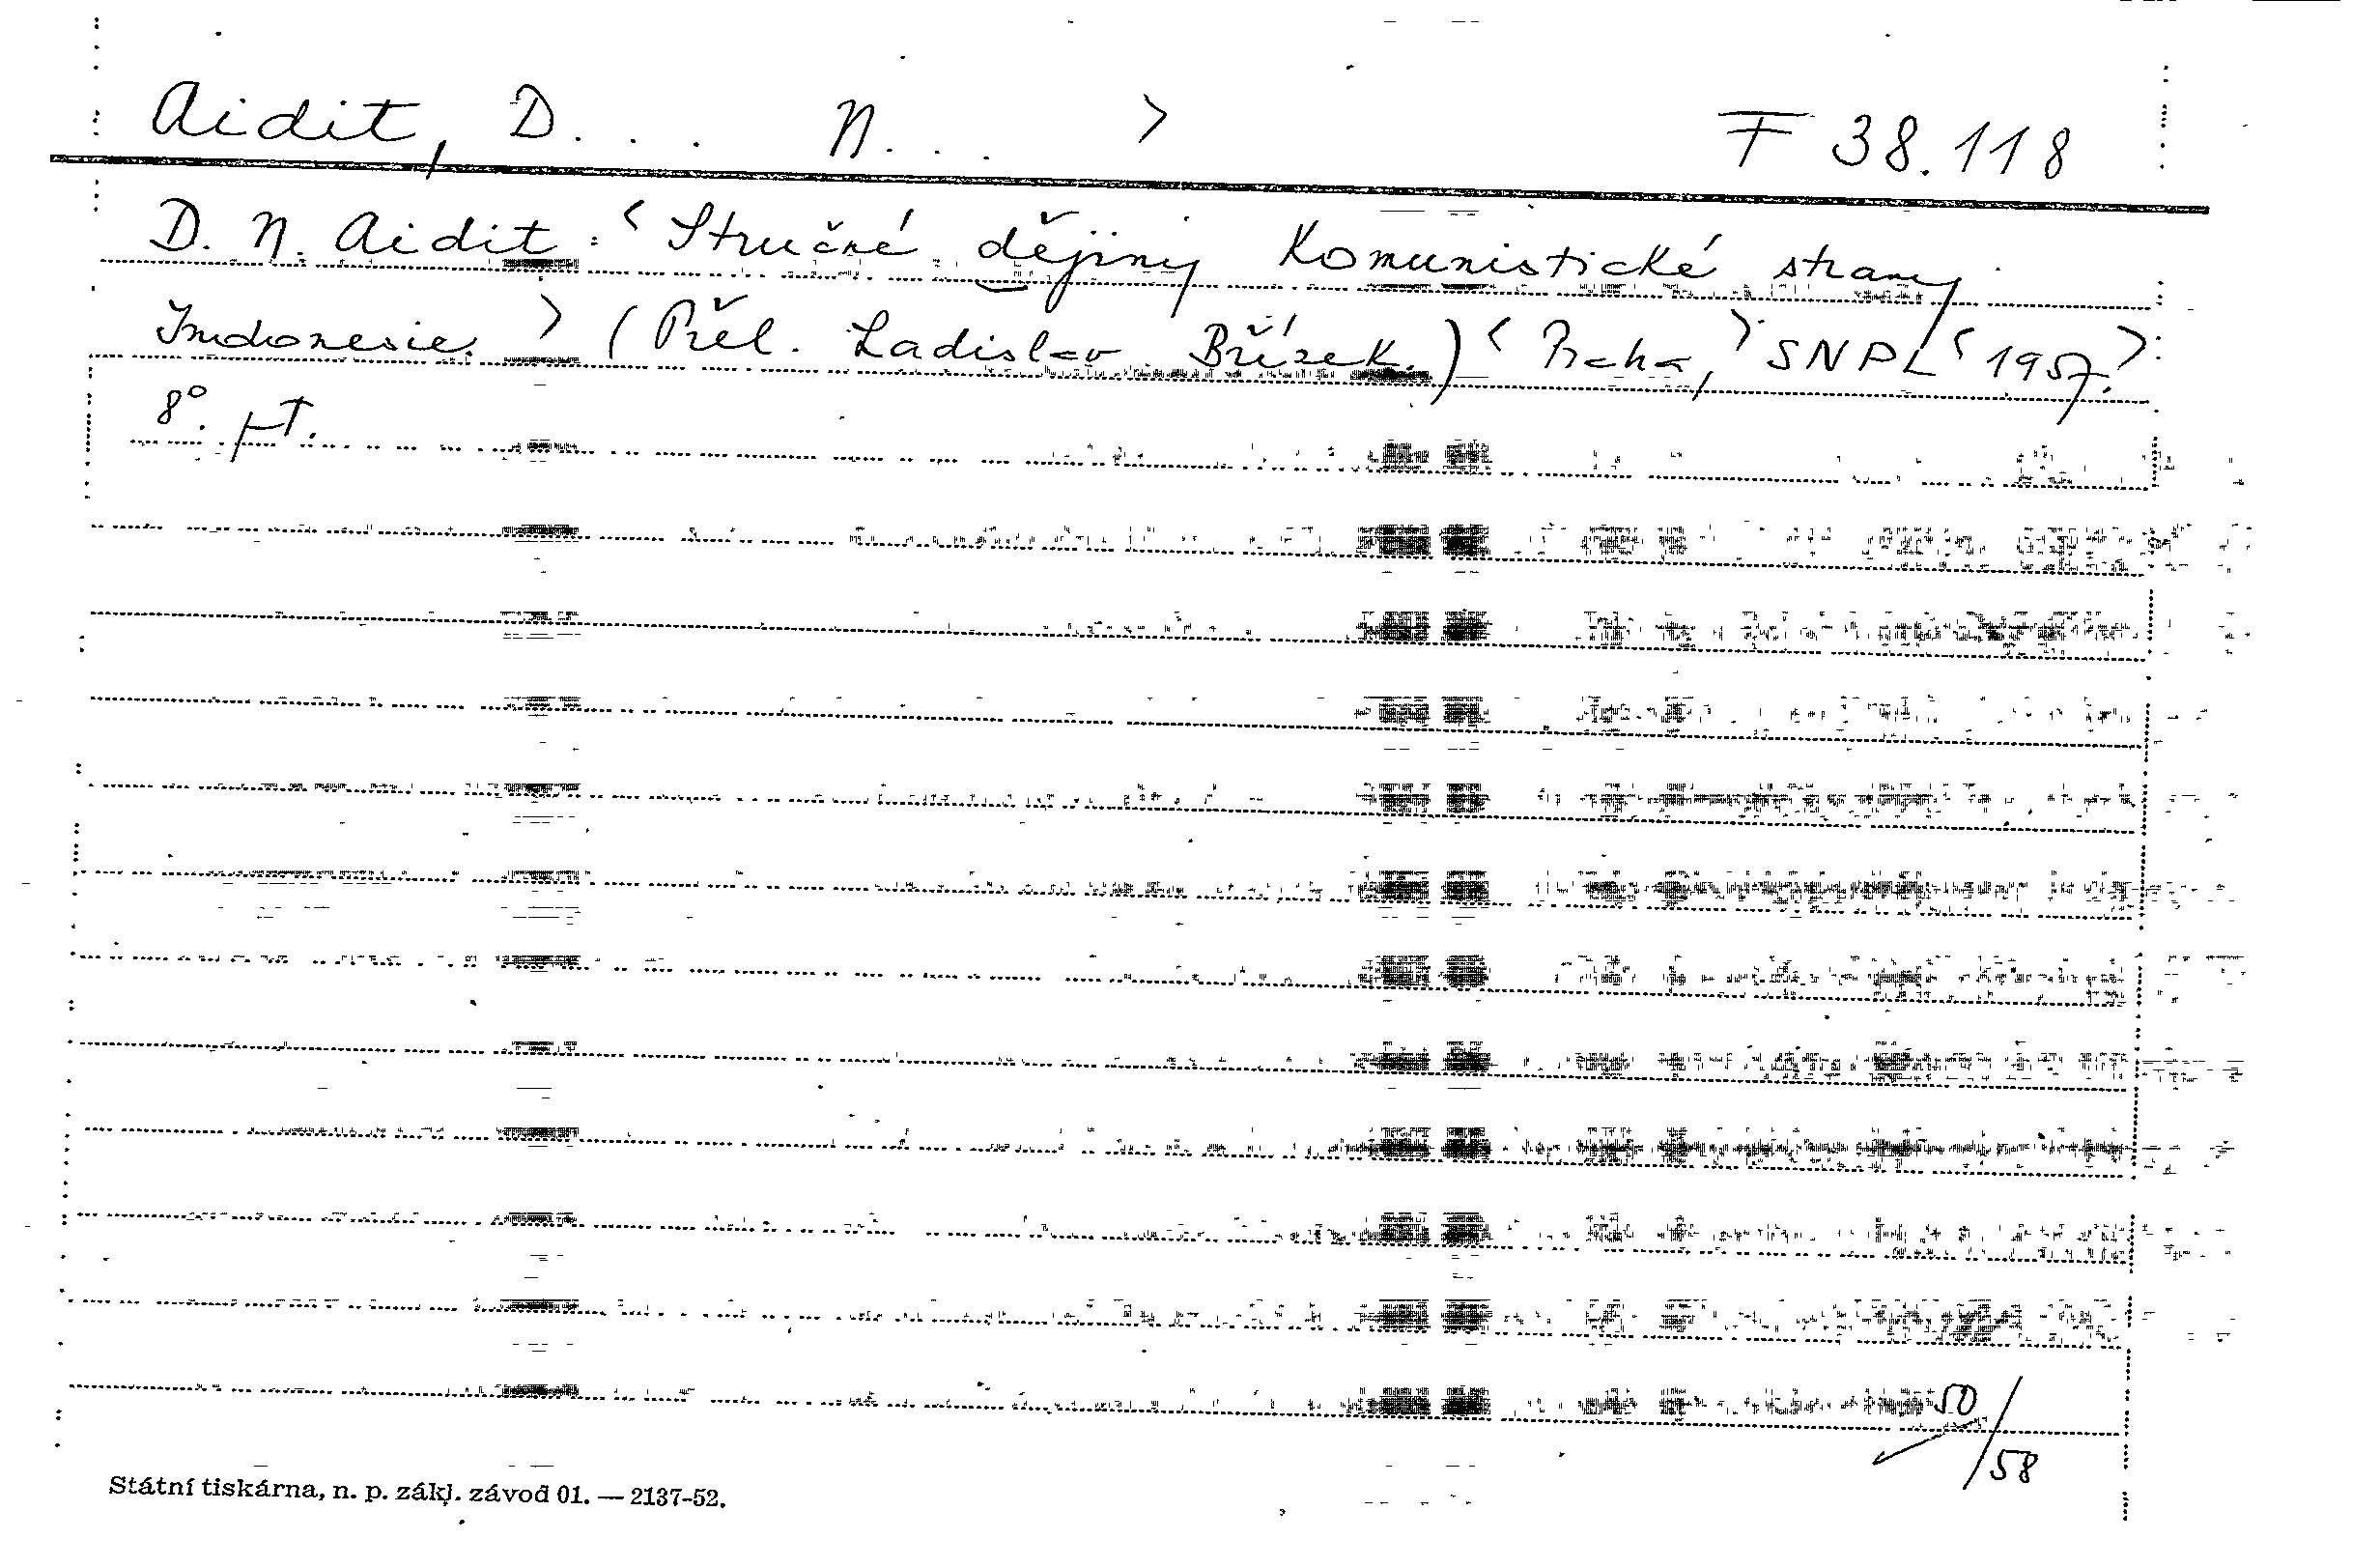 Aidit, D... N... > F 38.118
D. N. Aidit: < Stručné dějiny Komunistické strany
Indonesie. > (Přel. Ladislav Břízek.) < Praha, > SNPL < 1957. >
8°. pt.
50/58
Státní tiskárna, n. p. zákl. závod 01. — 2137-52.